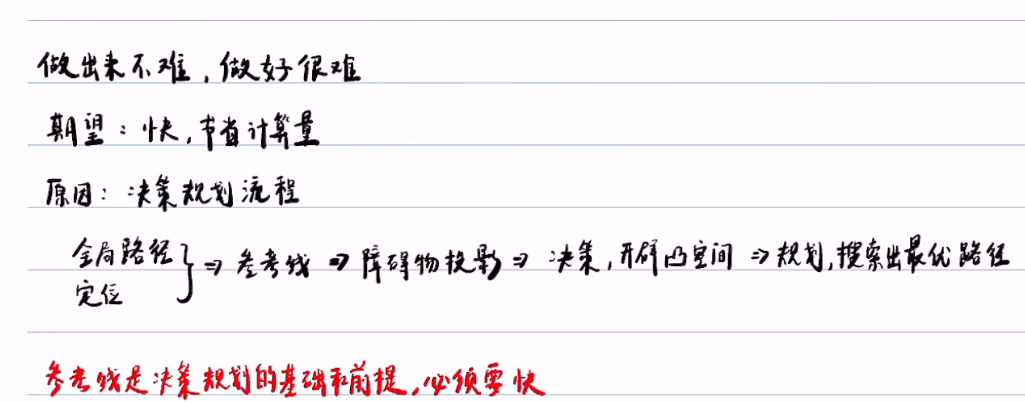 做出来不难，做好很难
期望：快，节省计算量
原因：决策规划流程
全局路径
定位
} ⇒ 参考线 ⇒ 障碍物投影 ⇒ 决策，开辟凸空间 ⇒ 规划，搜索出最优路径
参考线是决策规划的基础和前提，必须要快